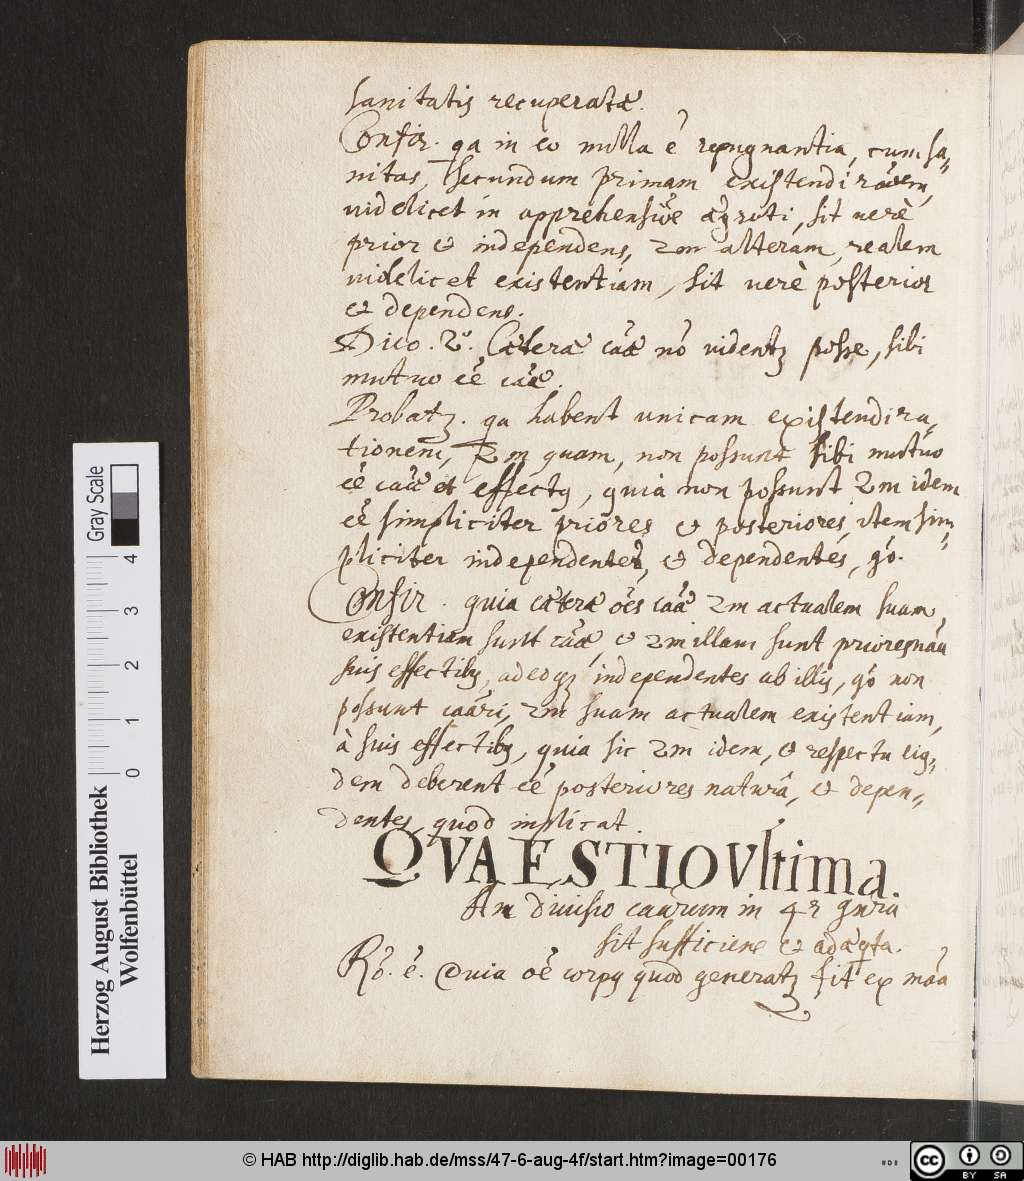 sanitatis recuperatæ.
Confir. qa in eo nulla ē repugnantia, cum sa-
nitas, secundum primam existendi rāōem,
videlicet in apprehensiōe ægroti, sit verè
prior & independens, 2m alteram, realem
videlicet existentiam, sit verè posterior
& dependens.
Dico. 2º. Cæteræ cāæ nō videntʒ posse, sibi
mutuo eē cāæ.
Probatʒ. qa habent unicam existendi ra-
tionem, 2m quam, non possunt sibi mutuo
eē cāæ et effectꝯ, quia non possunt 2m idem
eē simpliciter priores & posteriores, item sim-
pliciter independentes, & dependentes, gō.
Confir. quia cæteræ oēs cāæ 2m actualem suam
existentiam sunt cāæ, & 2m illam sunt priores nāā
suis effectibꝯ, adeoqʒ independentes ab illis, gō non
possunt caāri, 2m suam actualem existentiam,
à suis effectibꝯ, quia sic 2m idem, & respectu eig-
dem deberent eē posteriores naturâ, & depen-
dentes, quod implicat.
QVAESTIO Vltima.
An divisio cauʒum in 4r gnʒa
sit sufficiens & adæqta.
Rō. ē. Quia oē corpꝯ quod generatʒ fit ex māā
Gray Scale
0 1 2 3 4
Herzog August Bibliothek
Wolfenbüttel
© HAB http://diglib.hab.de/mss/47-6-aug-4f/start.htm?image=00176
cc BY SA